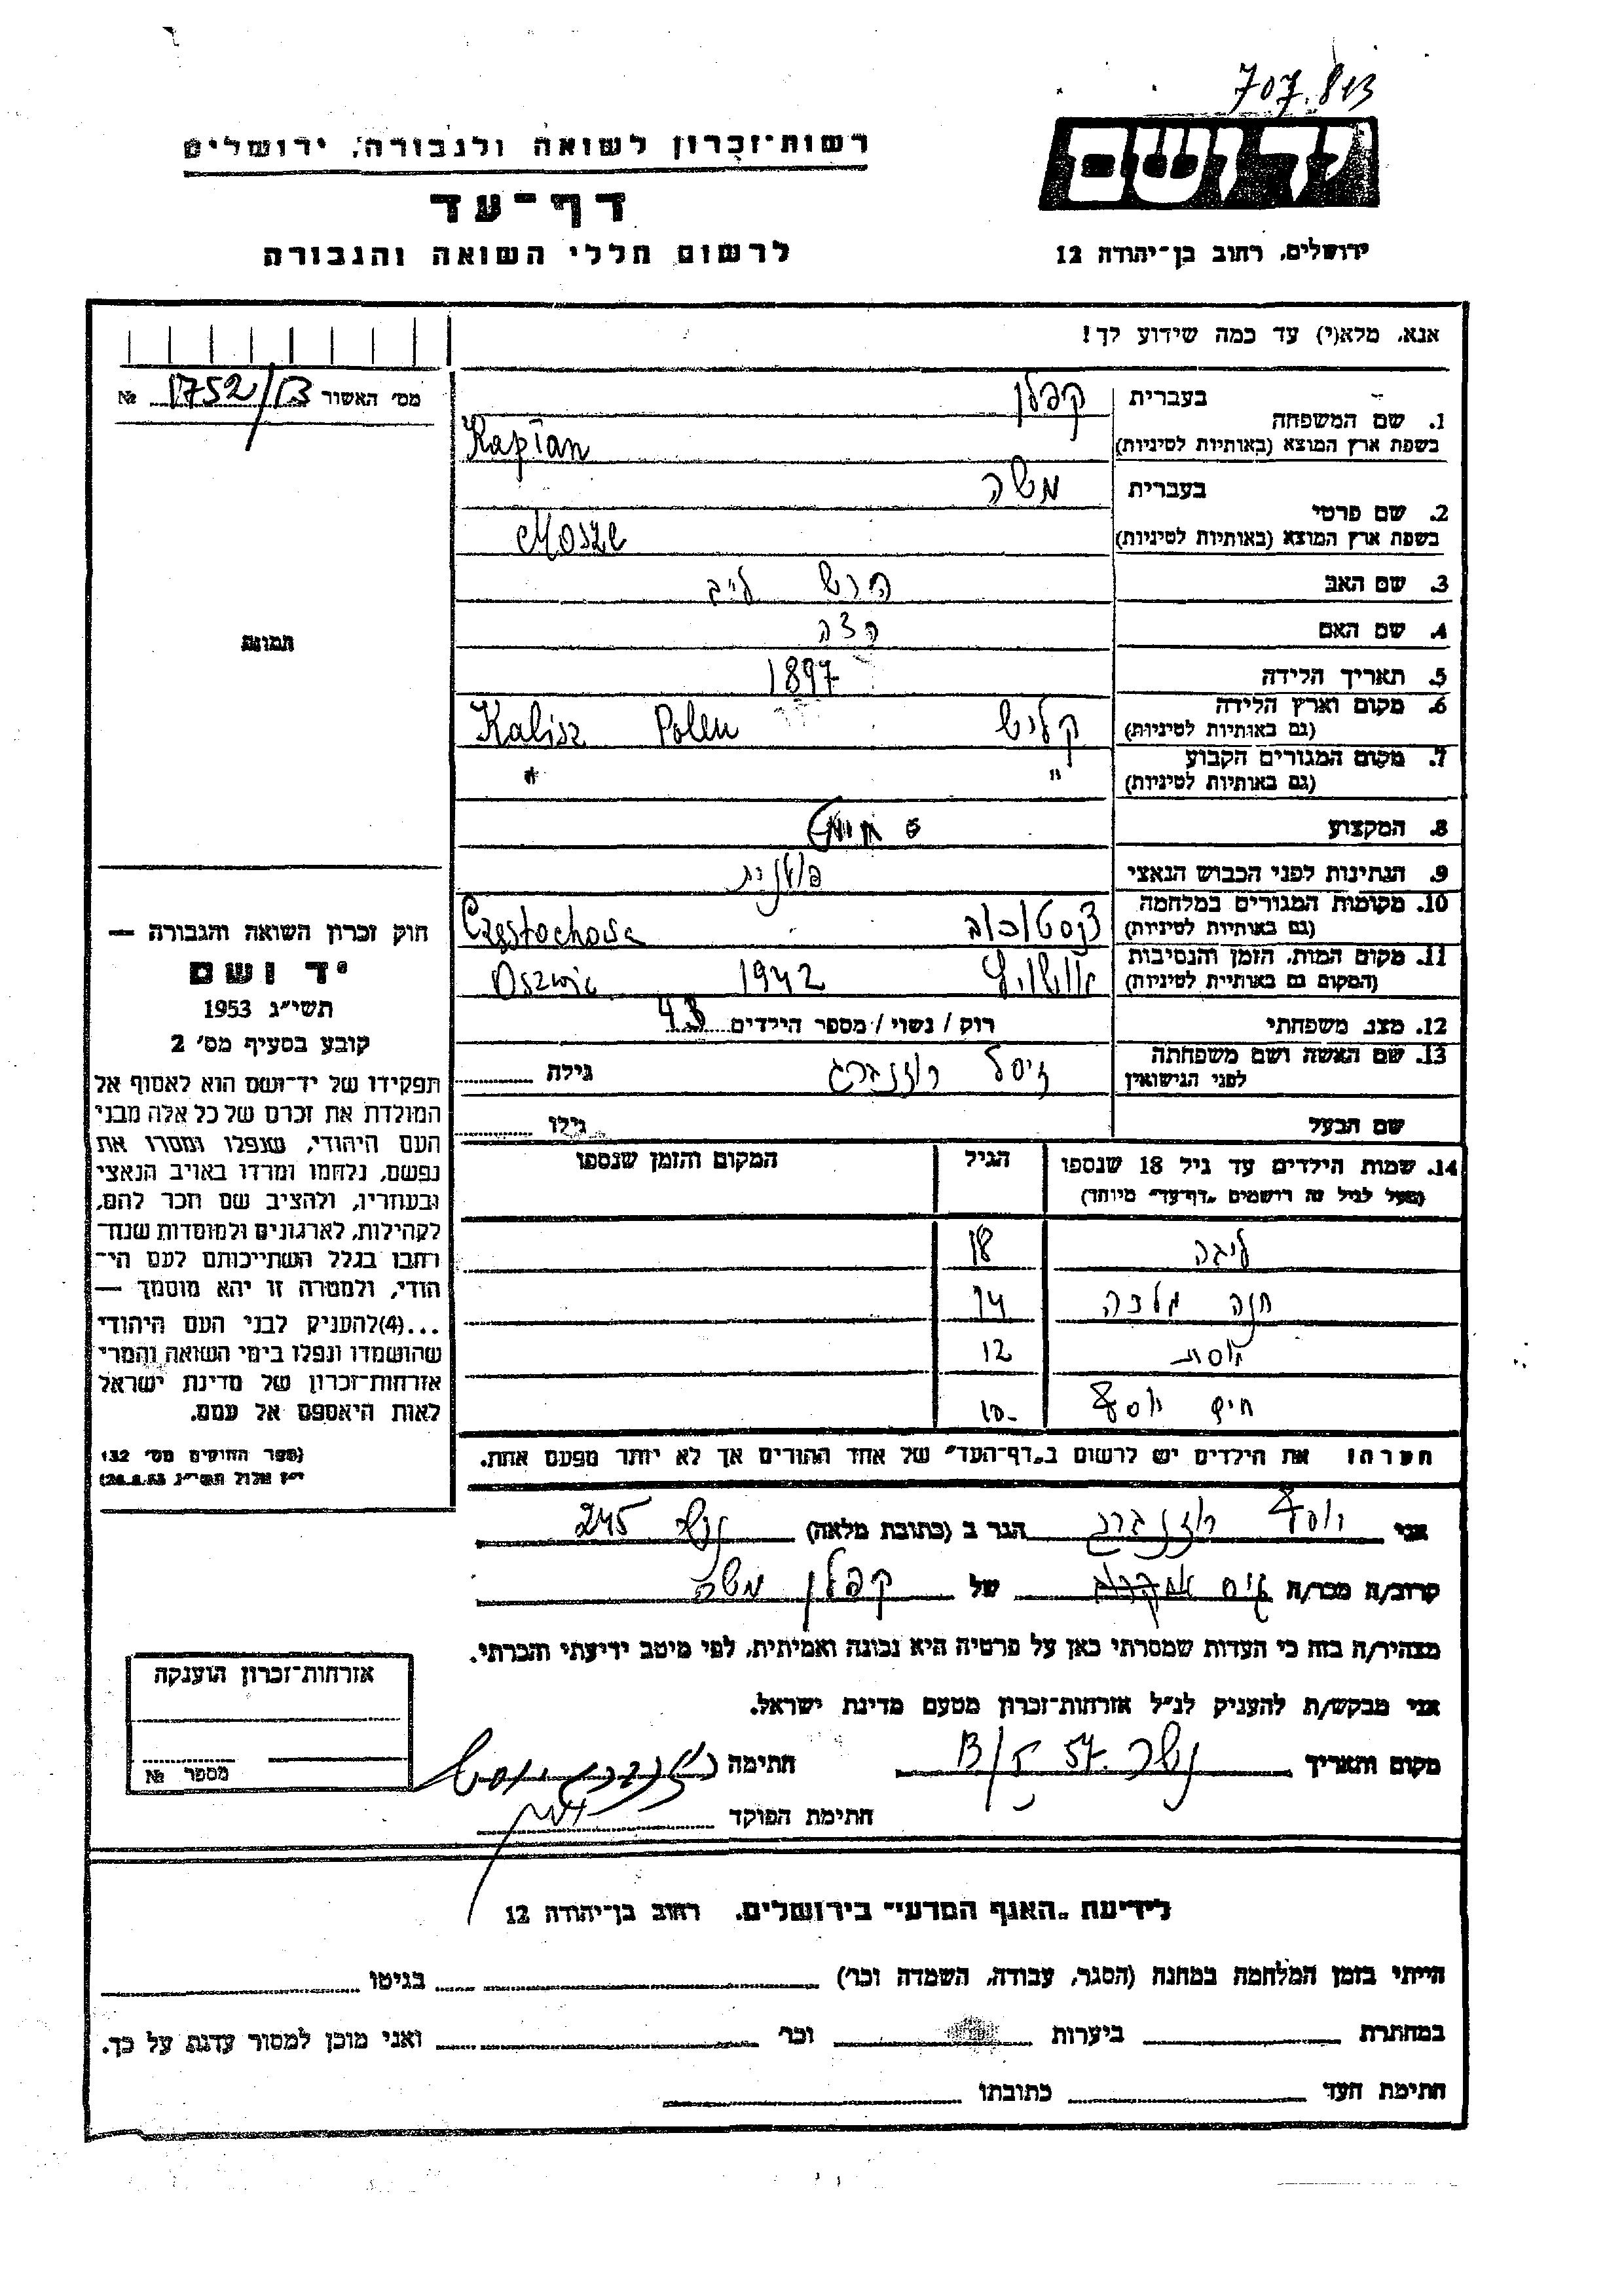 707.813
יד ושם
רשות־זכרון לשואה ולגבורה, ירושלים
דף־עד
לרשום חללי השואה והגבורה
ירושלים, רחוב בן־יהודה 12
אנא, מלא(י) עד כמה שידוע לך!
מס׳ האשור 1752/13 №
תמונת
1. שם המשפחה בעברית קפלן
בשפת ארץ המוצא (באותיות לטיניות) Kapłan
2. שם פרטי בעברית משה
בשפת ארץ המוצא (באותיות לטיניות) Mosze
3. שם האב הרש לייב
4. שם האם
5. תאריך הלידה 1897
6. מקום וארץ הלידה קליש Polen Kalisz
(גם באותיות לטיניות)
7. מקום המגורים הקבוע " "
(גם באותיות לטיניות)
8. המקצוע
9. הנתינות לפני הכבוש הנאצי פולנית
10. מקומות המגורים במלחמה צ׳נסטוכוב Częstochowa
(גם באותיות לטיניות)
11. מקום המות, הזמן והנסיבות אושויץ 1942
(המקום גם באותיית לטיניות)
12. מצב משפחתי רוק / נשוי / מספר הילדים 4
13. שם האשה ושם משפחתה רוזנברג גילה
לפני הנישואין
שם הבעל גילו
14. שמות הילדים עד גיל 18 שנספו הגיל המקום והזמן שנספו
(מעל לגיל זה רושמים „דף־עד״ מיוחד)
ליבה 18
חנה 14
12
חיים יוסף 10
הערה! את הילדים יש לרשום ב„דף־העד״ של אחד ההורים אך לא יותר מפעם אחת.
חוק זכרון השואה והגבורה —
יד ושם
תשי״ג 1953
קובע בסעיף מס׳ 2
תפקידו של יד־ושם הוא לאסוף אל
המולדת את זכרם של כל אלה מבני
העם היהודי, שנפלו ומסרו את
נפשם, נלחמו ומרדו באויב הנאצי
ובעוזריו, ולהציב שם וזכר להם,
לקהילות, לארגונים ולמוסדות שנח־
רבו בגלל השתייכותם לעם הי־
הודי, ולמטרה זו יהא מוסמך —
...(4)להעניק לבני העם היהודי
שהושמדו ונפלו בימי השואה והמרי
אזרחות־זכרון של מדינת ישראל
לאות היאספם אל עמם.
(ספר החוקים מס׳ 132
י״ז אלול תשי״ג 28.8.53)
אני יוסף רוזנברג הגר ב (כתובת מלאה) נשר 245
קרוב/ה מכר/ה גיס של קפלן משה
מצהיר/ה בזה כי העדות שמסרתי כאן על פרטיה היא נכונה ואמיתית, לפי מיטב ידיעתי והכרתי.
אני מבקש/ת להעניק לנ״ל אזרחות־זכרון מטעם מדינת ישראל.
מקום ותאריך נשר חתימה רוזנברג יוסף
חתימת הפוקד
אזרחות־זכרון הוענקה
מספר №
לידיעת „האגף המדעי״ בירושלים, רחוב בן־יהודה 12
הייתי בזמן המלחמה במחנה (הסגר, עבודה, השמדה וכו׳) בגיטו
במחתרת ביערות וכו׳ ואני מוכן למסור עדות על כך.
חתימת העד כתובתו